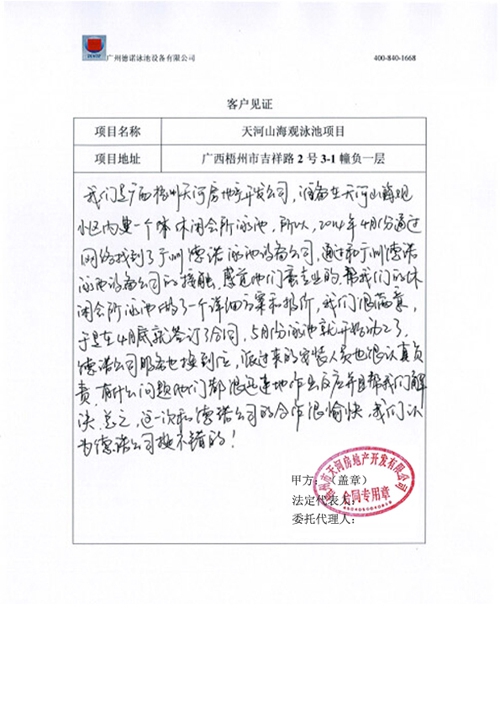 广州德诺泳池设备有限公司 400-840-1668
客户见证
项目名称 天河山海观泳池项目
项目地址 广西梧州市吉祥路 2 号 3-1 幢负一层
我们是广西梧州天河房地产开发公司,准备在天河山海观
小区内建一个休闲会所泳池,所以,2014年4月份通过
网络找到了广州德诺泳池设备公司,通过和广州德诺
泳池设备公司的接触,感觉他们蛮专业的,帮我们的休
闲会所泳池做了一个详细方案和报价,我们很满意,
于是在4月底就签订了合同,5月份泳池就开始动工了,
德诺公司服务也挺到位,派过来的安装人员也很认真负
责,有什么问题他们都很迅速地作出反应并且帮我们解
决,总之,这一次和德诺公司的合作很愉快,我们认
为德诺公司挺不错的!
甲方:(盖章)
法定代表人:
委托代理人:
梧州市天河房地产开发有限公司
合同专用章